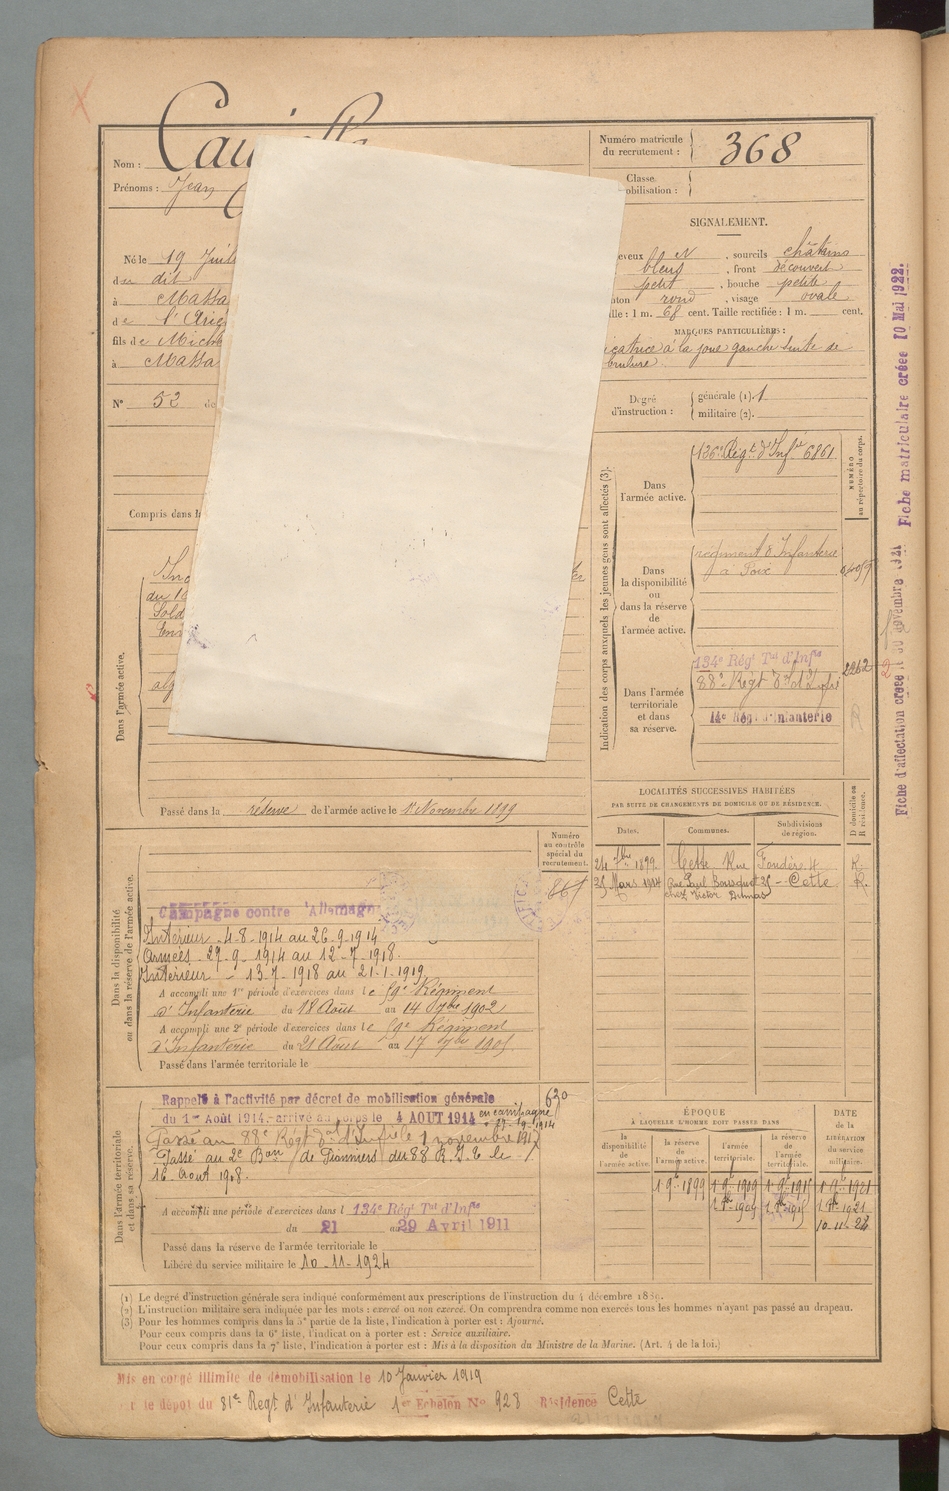 Numéro matricule
du recrutement :
368
Nom :
Prénoms : Jean
Classe
SIGNALEMENT.
Né le 19
du dit
à Massa
de l'Arieg
fils de
à Massa
N° 52 de
, sourcils châtains
bleus , front découvert
petit , bouche petite
rond , visage ovale
1 m. 68 cent. Taille rectifiée : 1 m. cent.
MARQUES PARTICULIÈRES :
à la joue gauche suite de
brulure
Degré
d'instruction :
générale (1). 1
militaire (2).
Indication des corps auxquels les jeunes gens sont affectés (3).
NUMÉRO
au répertoire du corps.
Dans
l'armée active.
136e Régt d'Infie 6861
Compris dans l
Dans
la disponibilité
ou
dans la réserve
de
l'armée active.
régiment d'Infanterie
à Foix
Dans l'armée
territoriale
et dans
sa réserve.
134e Régt Tal d'Infie
2262
88e Régt
14e Rég. d'Infanterie
Dans l'armée active.
du 16
Sold
Passé dans la réserve de l'armée active le 1er Novembre 1899
LOCALITÉS SUCCESSIVES HABITÉES
PAR SUITE DE CHANGEMENTS DE DOMICILE OU DE RÉSIDENCE.
D domicile ou
R résidence.
Dates.
Communes.
Subdivisions
de région.
24 7bre 1899. Cette Rue 4 R.
Mars 1914 Rue Paul Bousquet 35 - Cette R.
chez Victor Delmas
Numéro
au contrôle
spécial du
recrutement.
861
Dans la disponibilité
ou dans la réserve de l'armée active.
Campagne contre l'Allemagn
Intérieur - 4-8-1914 au 26-9-1914
Armées - 27-9-1914 au 12-7-1918.
Intérieur - 13-7-1918 au 21-1-1919
A accompli une 1re période d'exercices dans le 59e Régiment
d'Infanterie du 18 Août au 14 7bre 1902
A accompli une 2e période d'exercices dans le 59e Régiment
d'Infanterie du 21 Août au 17 7bre 1905
Passé dans l'armée territoriale le
Dans l'armée territoriale
et dans sa réserve.
Rappelé à l'activité par décret de mobilisation générale
630
du 1er Août 1914. arrivé au corps le 4 AOUT 1914 en campagne
Passé au 88e Régt d'Infie le 1 novembre 1917
Passé au 2e Bon de Pionniers du 88 R.I.T. le
16 Aout 1918.
A accompli une période d'exercices dans l 134e Régt Tal d'Infie
du 21 au 29 Avril 1911
Passé dans la réserve de l'armée territoriale le
Libéré du service militaire le 10-11-1924
ÉPOQUE
À LAQUELLE L'HOMME DOIT PASSER DANS
la
disponibilité
de
l'armée active.
la réserve
de
l'armée active.
l'armée
territoriale.
la réserve
de
l'armée
territoriale.
DATE
de la
LIBÉRATION
du service
militaire.
1 9bre 1899 1 9bre 1909 1 9bre 1915 1 9bre 1921
10-11-24
(1) Le degré d'instruction générale sera indiqué conformément aux prescriptions de l'instruction du 4 décembre 1889.
(2) L'instruction militaire sera indiquée par les mots : exercé ou non exercé. On comprendra comme non exercés tous les hommes n'ayant pas passé au drapeau.
(3) Pour les hommes compris dans la 5e partie de la liste, l'indication à porter est : Ajourné.
Pour ceux compris dans la 6e liste, l'indication à porter est : Service auxiliaire.
Pour ceux compris dans la 7e liste, l'indication à porter est : Mis à la disposition du Ministre de la Marine. (Art. 4 de la loi.)
Mis en congé illimité de démobilisation le 10 Janvier 1919
le dépôt du 81e Regt d'Infanterie 1er Echelon N° 928 Résidence Cette
Fiche d'affectation créée le 30 Novembre 1921 Fiche matriculaire créée 10 Mai 1922.